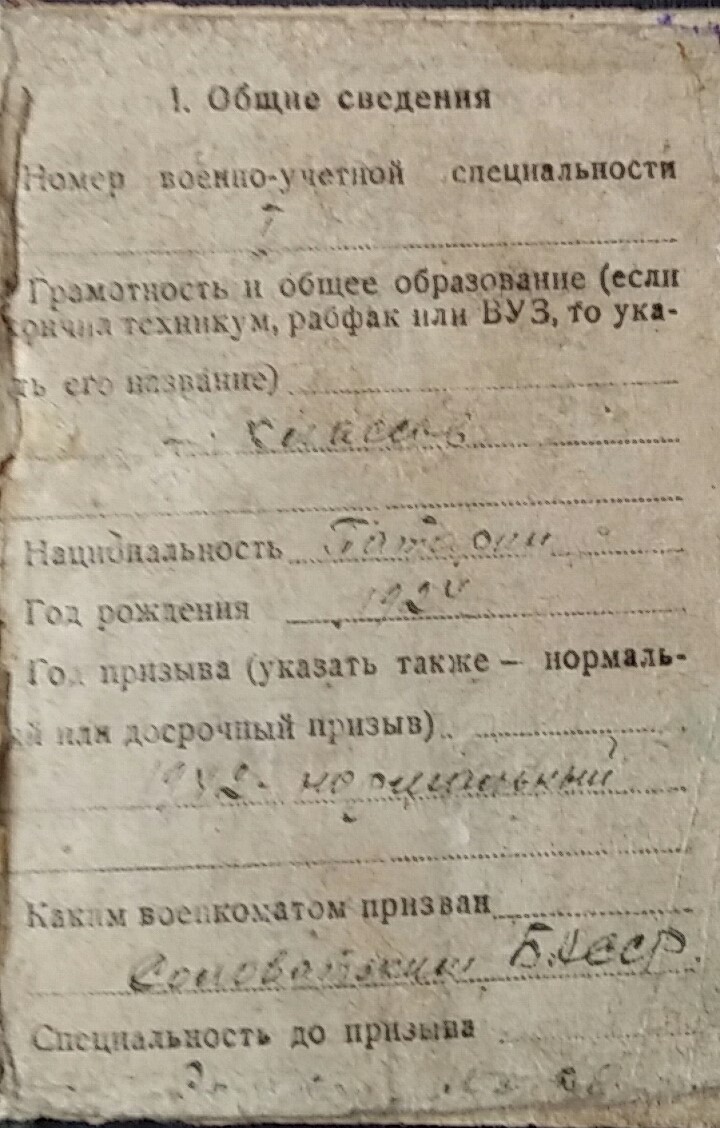 1. Общие сведения
Номер военно-учетной специальности
Грамотность и общее образование (если
кончил техникум, рабфак или ВУЗ, то ука-
ть его название)
классов
Национальность Татарин
Год рождения 1924
Год призыва (указать также – нормаль-
й или досрочный призыв)
1942. нормальный
Каким военкоматом призван
БАССР.
Специальность до призыва